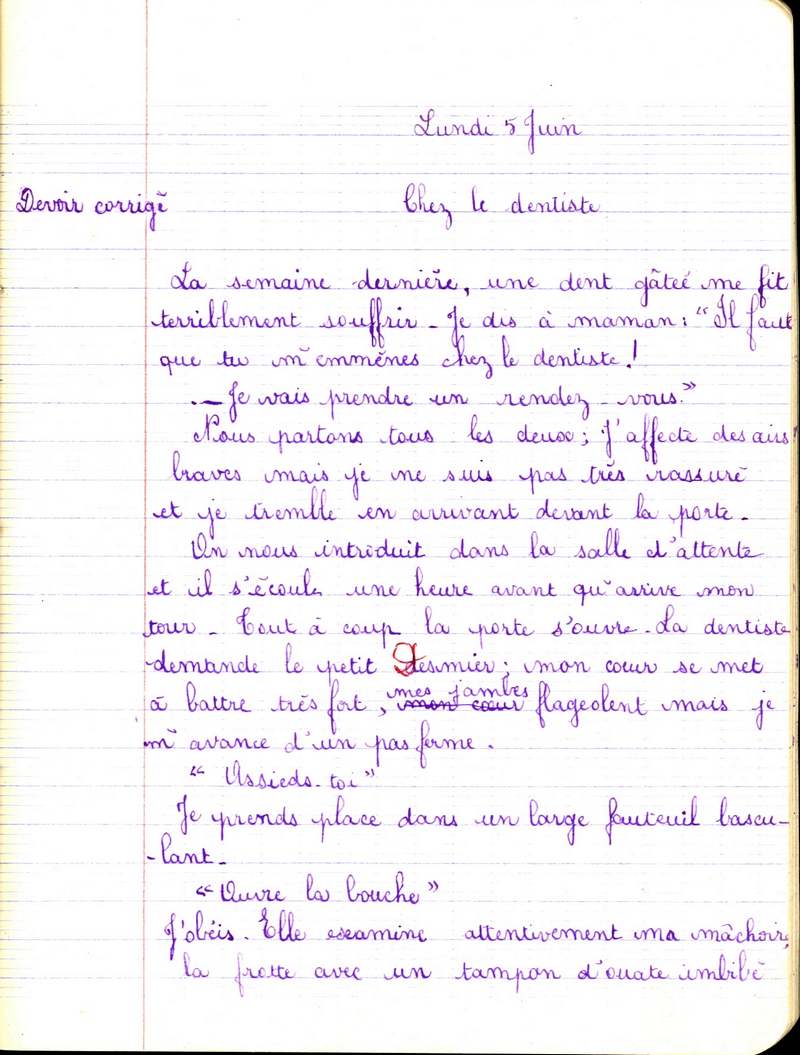 Lundi 5 Juin
Devoir corrigé
Chez le dentiste
La semaine dernière, une dent gâteé me fit
terriblement souffrir - Je dis à maman : "Il faut
que tu m'emmènes chez le dentiste.!
- Je vais prendre un rendez-vous."
Nous partons tous les deux ; J'affecte des airs
braves mais je ne suis pas très rassuré
et je tremble en arrivant devant la porte -
On nous introduit dans la salle d'attente
et il s'écoule une heure avant qu'arrive mon
tour - Tout à coup la porte s'ouvre - La dentiste
demande le petit Desmier ; mon cœur se met
à battre très fort, mes jambes mon cœur flageolent mais je
m'avance d'un pas ferme .
" Assieds-toi "
Je prends place dans un large fauteuil bascu-
-lant -
" Ouvre la bouche "
J'obéis . Elle examine attentivement ma mâchoire,
la frotte avec un tampon d'ouate imbibé